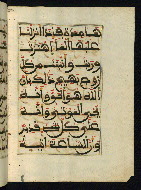 هامدة فإذا أنزلنا
عليها الماء اهتزت
وربت وأنبتت من كل
زوج بهيج ذلك بأن
الله هو الحق وأنه
يحي الموتى وأنه
على كل شيء قدير
وأن الساعة آتية